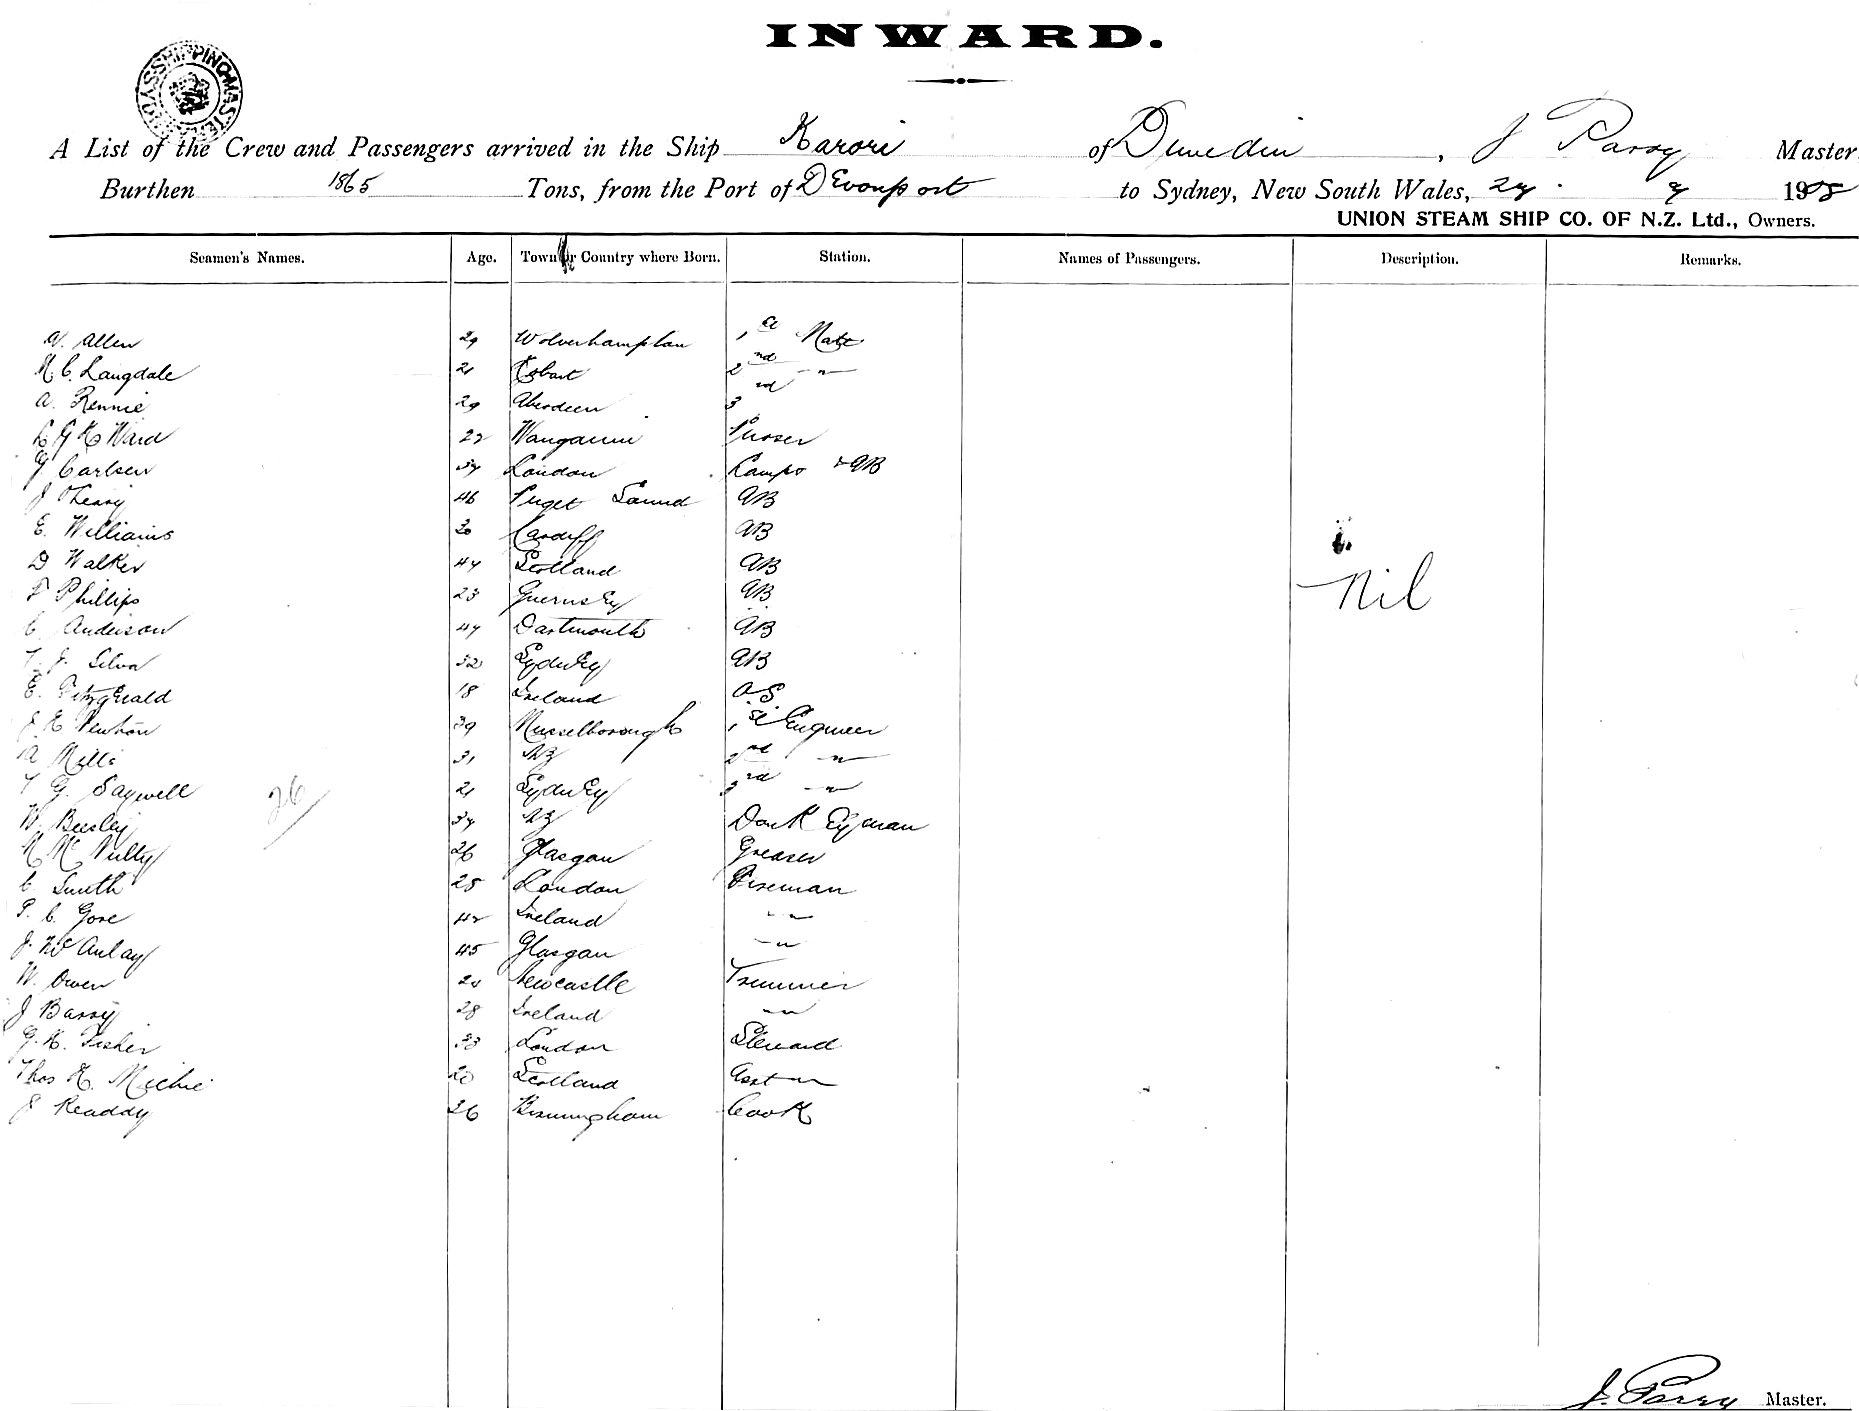 INWARD.
SHIPPING MASTER
A List of the Crew and Passengers arrived in the Ship Karori of Dunedin, J Parry Master
Burthen 1865 Tons, from the Port of Devonport to Sydney, New South Wales, 1908
UNION STEAM SHIP CO. OF N.Z. Ltd., Owners.
Seamen's Names. Age. Town or Country where Born. Station. Names of Passengers. Description. Remarks.
Allen 29 Wolverhampton 1st Mate
C. Langdale 21 Hobart 2nd "
A. Rennie 29 Aberdeen 3rd
Ward 22 Wanganui Purser
Carlsen 34 London Lamps & AB
J 46 Puget Sound AB
E. Williams 20 Cardiff AB
D Walker 44 Scotland AB
F Phillips 23 Guernsey AB
C Anderson 44 Dartmouth AB
T. J. Silva 32 Sydney AB
E. Fitzgerald 18 Ireland O.S.
Newton 39 Musselborough 1st Engineer
A Mills 31 NZ 2nd "
T G. Saywell 21 Sydney 3rd "
W. Beesley 34 NZ Donk Eyman
McNulty 26 Glasgow Greaser
C Smith 25 London Fireman
P. C. Gore 42 Ireland "
J. McAulay 45 Glasgow "
W. Owen Newcastle Trimmer
J Barry 28 Ireland "
G. H. Fisher 33 London Steward
Thos H. Michie 20 Scotland Asst "
J Readdy 36 Birmingham Cook
Nil
26
J. Parry Master.